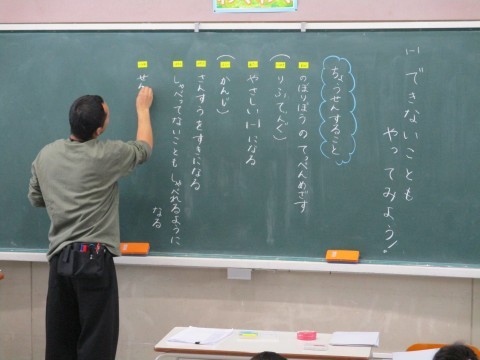 できないことも
やってみよう！
ちょうせんすること
のぼりぼうのてっぺんめざす
(りふてぃんぐ)
やさしい1-1になる
(かんじ)
さんすうをすきになる
しゃべってないこともしゃべれるように
なる
せか